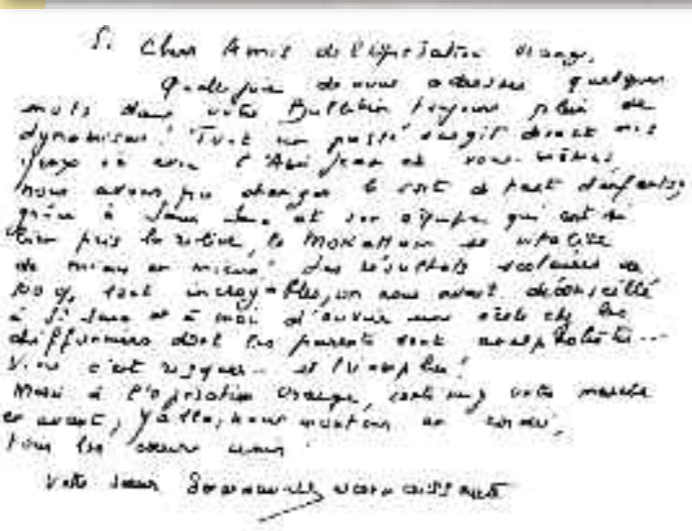 Chers Amis de l'Opération Orange,
Quelle joie de vous adresser quelques
mots dans votre Bulletin toujours plein de
dynamisme! Tout un passé surgit devant mes
yeux où avec l'Ami Jean et vous-mêmes
nous avons pu changer le sort de tant d'enfants;
grâce à Sœur Sara et son équipe qui ont si
bien pris la relève, le Mokattam se vitalise
de mieux en mieux! Les résultats scolaires de
sont incroyables, on nous avait déconseillé
à Sr Sara et à moi d'ouvrir une école chez les
chiffonniers dont les parents sont analphabètes...
c'est risquer... et
Merci à l'Opération Orange, continuez votre marche
en avant, Yalla, nous montons en cordée,
tous les cœurs unis!
Votre sœur Emmanuelle reconnaissante